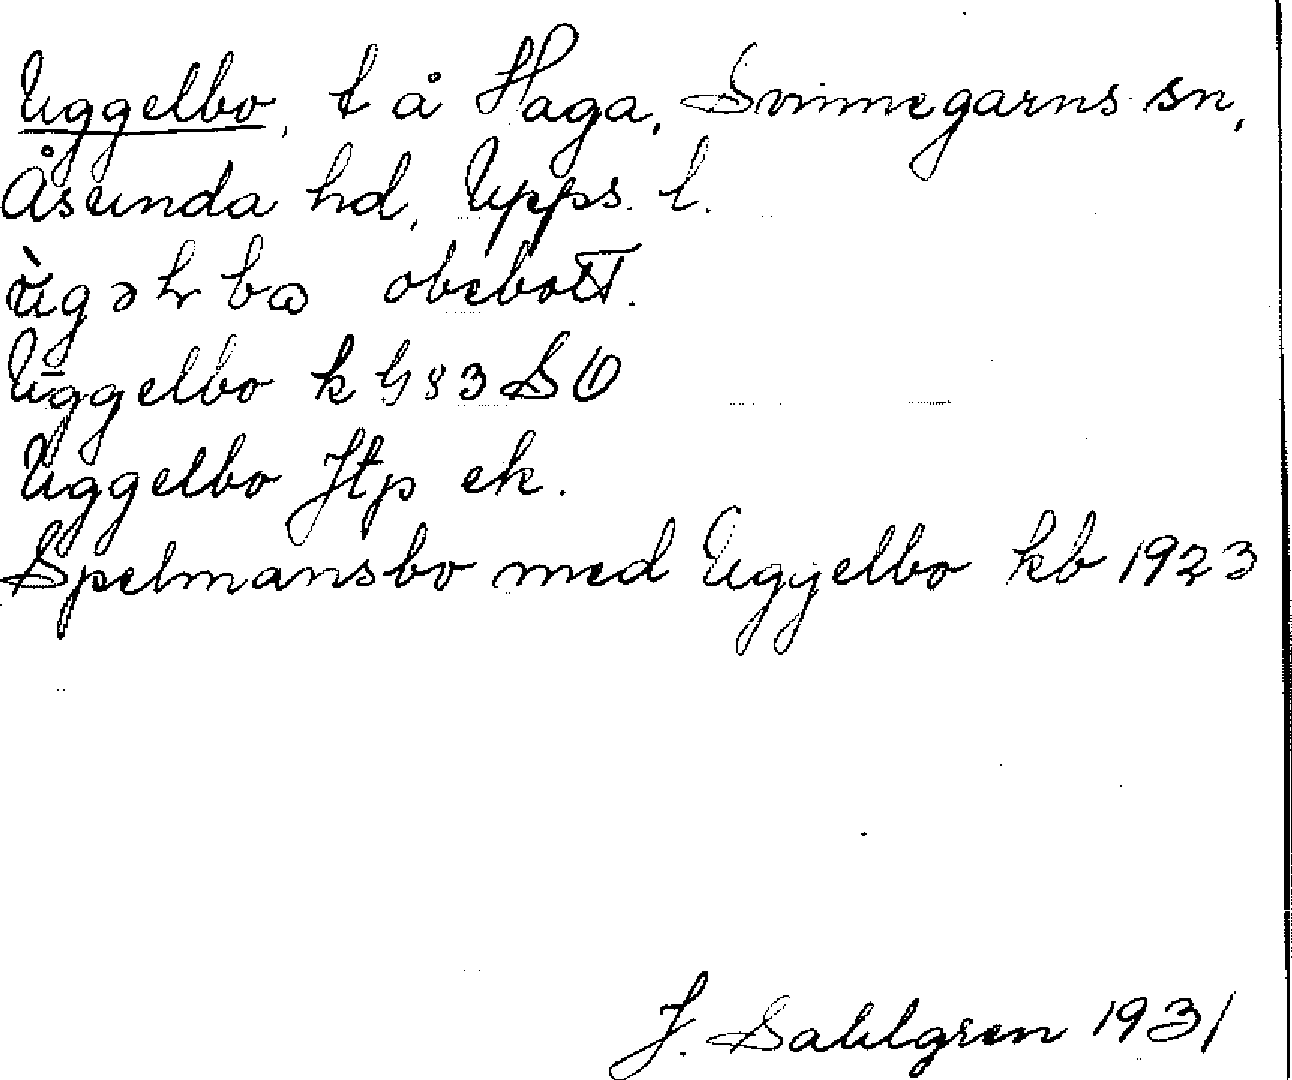 Uggelbo, t å Haga, Svinnegarns sn,
Åsunda hd, Upps. l.
obebott.
Uggelbo k G83 SO
Uggelbo Jtp ek.
Spelmansbo med Uggelbo kb 1923
J. Sahlgren 1931